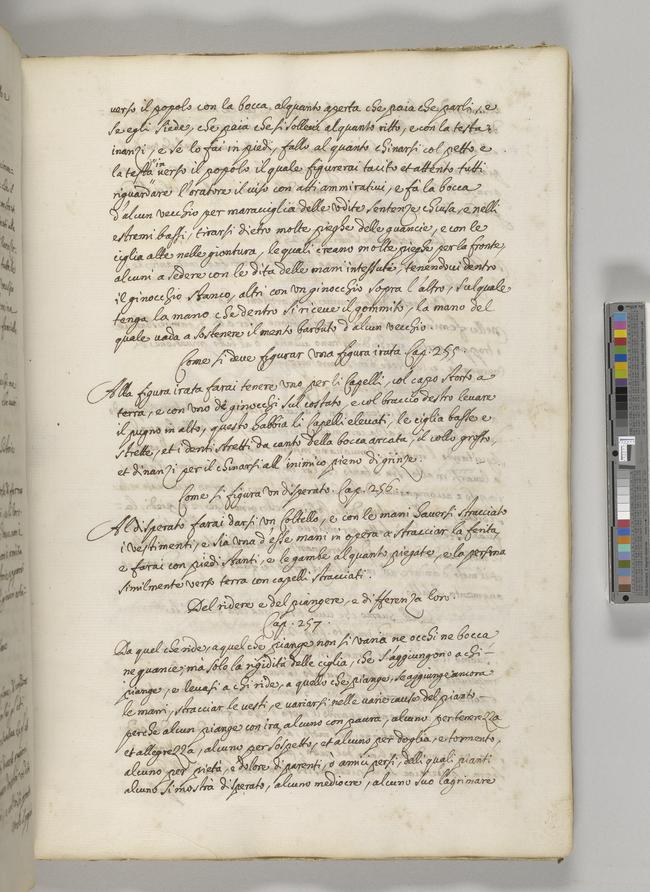 verso il popolo con la bocca alquanto aperta che paia che parli, e
se egli siede, che paia che si sollevi alquanto ritto, e con la testa
inanzi, e se lo fai in piedi, fallo alquanto chinarsi col petto e
la testa in verso il popolo il quale figurerai tacito et attento tutti
riguardare l'oratore il viso con atti ammirativi, e fa la bocca
d'alcun vecchio per maraviglia delle udite sentenze chiusa, e nelli
estremi bassi, tirarsi dietro molte pieghe delle quancie, e con le
ciglia alte nelle giontura, le quali creano molte pieghe per la fronte,
alcuni a sedere con le dita delle mani intessute, tenendovi dentro
il ginocchio stanco, altri con un ginocchio sopra l'altro, sul quale
tenga la mano che dentro si riceve il gommito, la mano del
quale vada a sostenere il mento barbuto d'alcun vecchio.
Come si deve figurar una figura irata Cap. 255.
Alla figura irata farai tenere uno per li Capelli, col capo storto a
terra, e con uno de ginocchi sul costato, e col braccio destro levare
il pugno in alto, questo habbia li Capelli elevati, le ciglia basse e
strette, et i denti stretti da canto della bocca arcata, il collo grosso,
et dinanzi per il chinarsi all'inimico pieno di grinze.
Come si figura un disperato. Cap. 256.
Al disperato farai darsi un Coltello, e con le mani haversi stracciato
i vestimenti, e sia una d'esse mani in opera a stracciar la ferita,
e farai con piedi stanti, e le gambe alquanto piegate, e la persona
similmente verso terra con capelli stracciati.
Del ridere e del piangere, e differenza loro.
Cap. 257.
Da quel che ride, a quel che piange non si varia ne occhi ne bocca
ne quancie, ma solo la rigidità delle ciglia, che s'aggiungono a chi
piange, e levasi a chi ride, a quello che piange, se aggiunge ancora
le mani, stracciar le vesti, e variarsi nelle varie cause del pianto
perche alcun piange con ira, alcuno con paura, alcuno per tenerezza
et allegrezza, alcuno per sospetto, et alcuno per doglia, e tormento,
alcuno per pietà, e dolore di parenti, o amici persi, deli quali pianti
alcuno si mostra disperato, alcuno mediocre, alcuno suo lagrimare